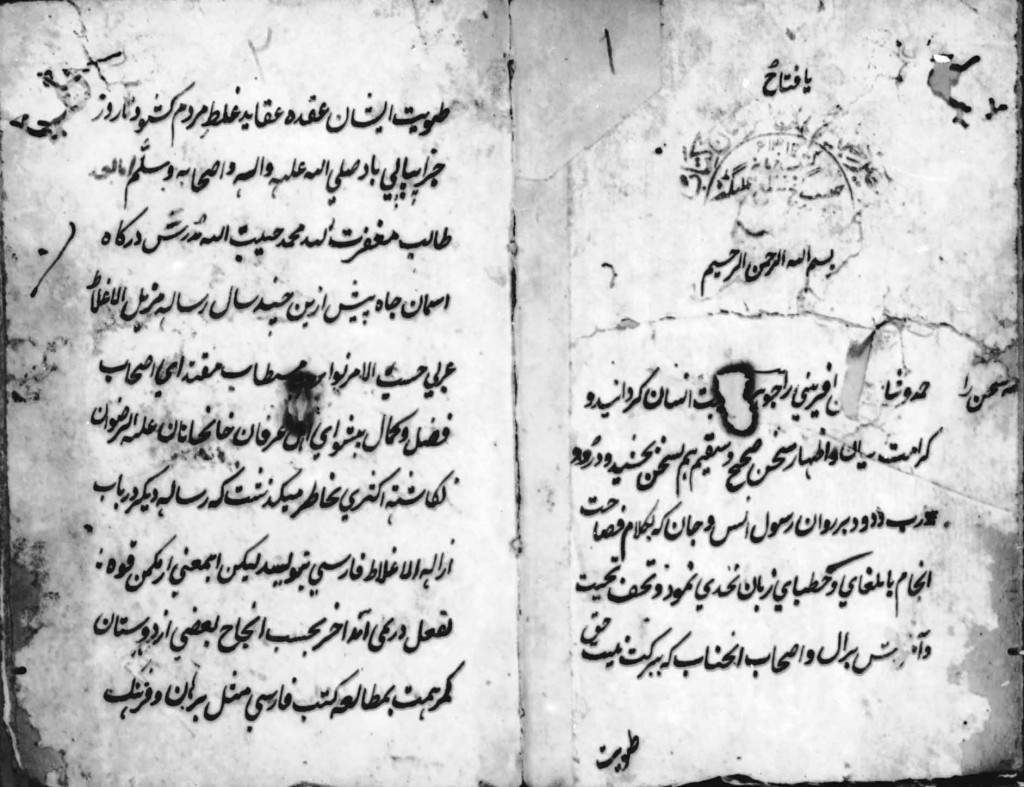 ۱
یا فتاح
بسم الله الرحمن الرحیم
حمد و ثنا سخن را افریني را جوهر انسان کردانید و
کرامت بیان و اظهار سخن صحیح و سقیم هم بسخن بخشید و درود
درود بر روان رسول انس و جان که بکلام فصاحت
انجام با بلغاي و خطباي زبان تحدي نمود و تحف تحیت
و بر ال و اصحاب انجناب که ببرکت نیت حق
طویت
۲
طویت ایشان عقده عقاید غلط مردم کشود تا روز
جزا پیاپي باد صلي الله علیه واله واصحابه وسلم اما بعد
طالب مغفرت اله محمد حبیب الله مدرس درکاه
اسمان جاه پیش ازین چند سال رساله مزیل الاغلاط
عربي حسب الامر نواب مستطاب مقتداي اصحاب
فضل و کمال پیشواي اهل عرفان خانخانان علیه الرضوان
نکاشته اکثري بخاطر میکذشت که رساله دیکر در باب
ازاله الاغلاط فارسي بنویسد لیکن اینمعني از مکمن قوه
بفعل در نمی آمد اخر بحسب انجاح بعضي از دوستان
کمر همت بمطالعه کتب فارسي مثل برهان و فرهنك